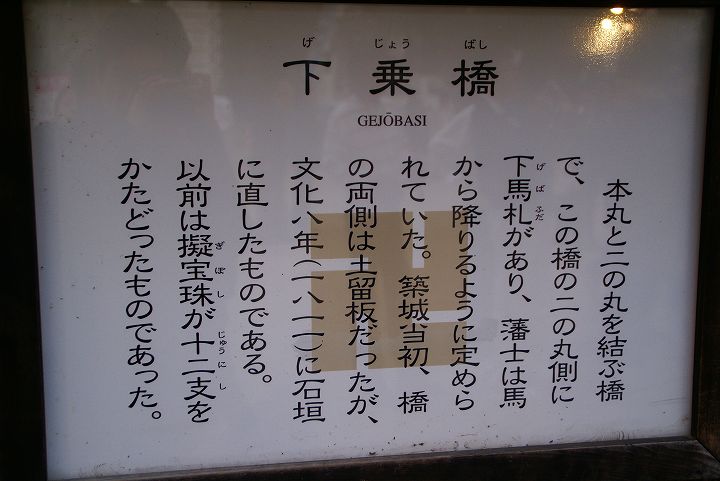 げじょうばし
下乗橋
GEJŌBASI
本丸と二の丸を結ぶ橋
で、この橋の二の丸側に
下馬札があり、藩士は馬
げばふだ
から降りるように定めら
れていた。築城当初、橋
の両側は土留板だったが、
文化八年(一八一一)に石垣
に直したものである。
以前は擬宝珠が十二支を
ぎぼしじゅうにし
かたどったものであった。